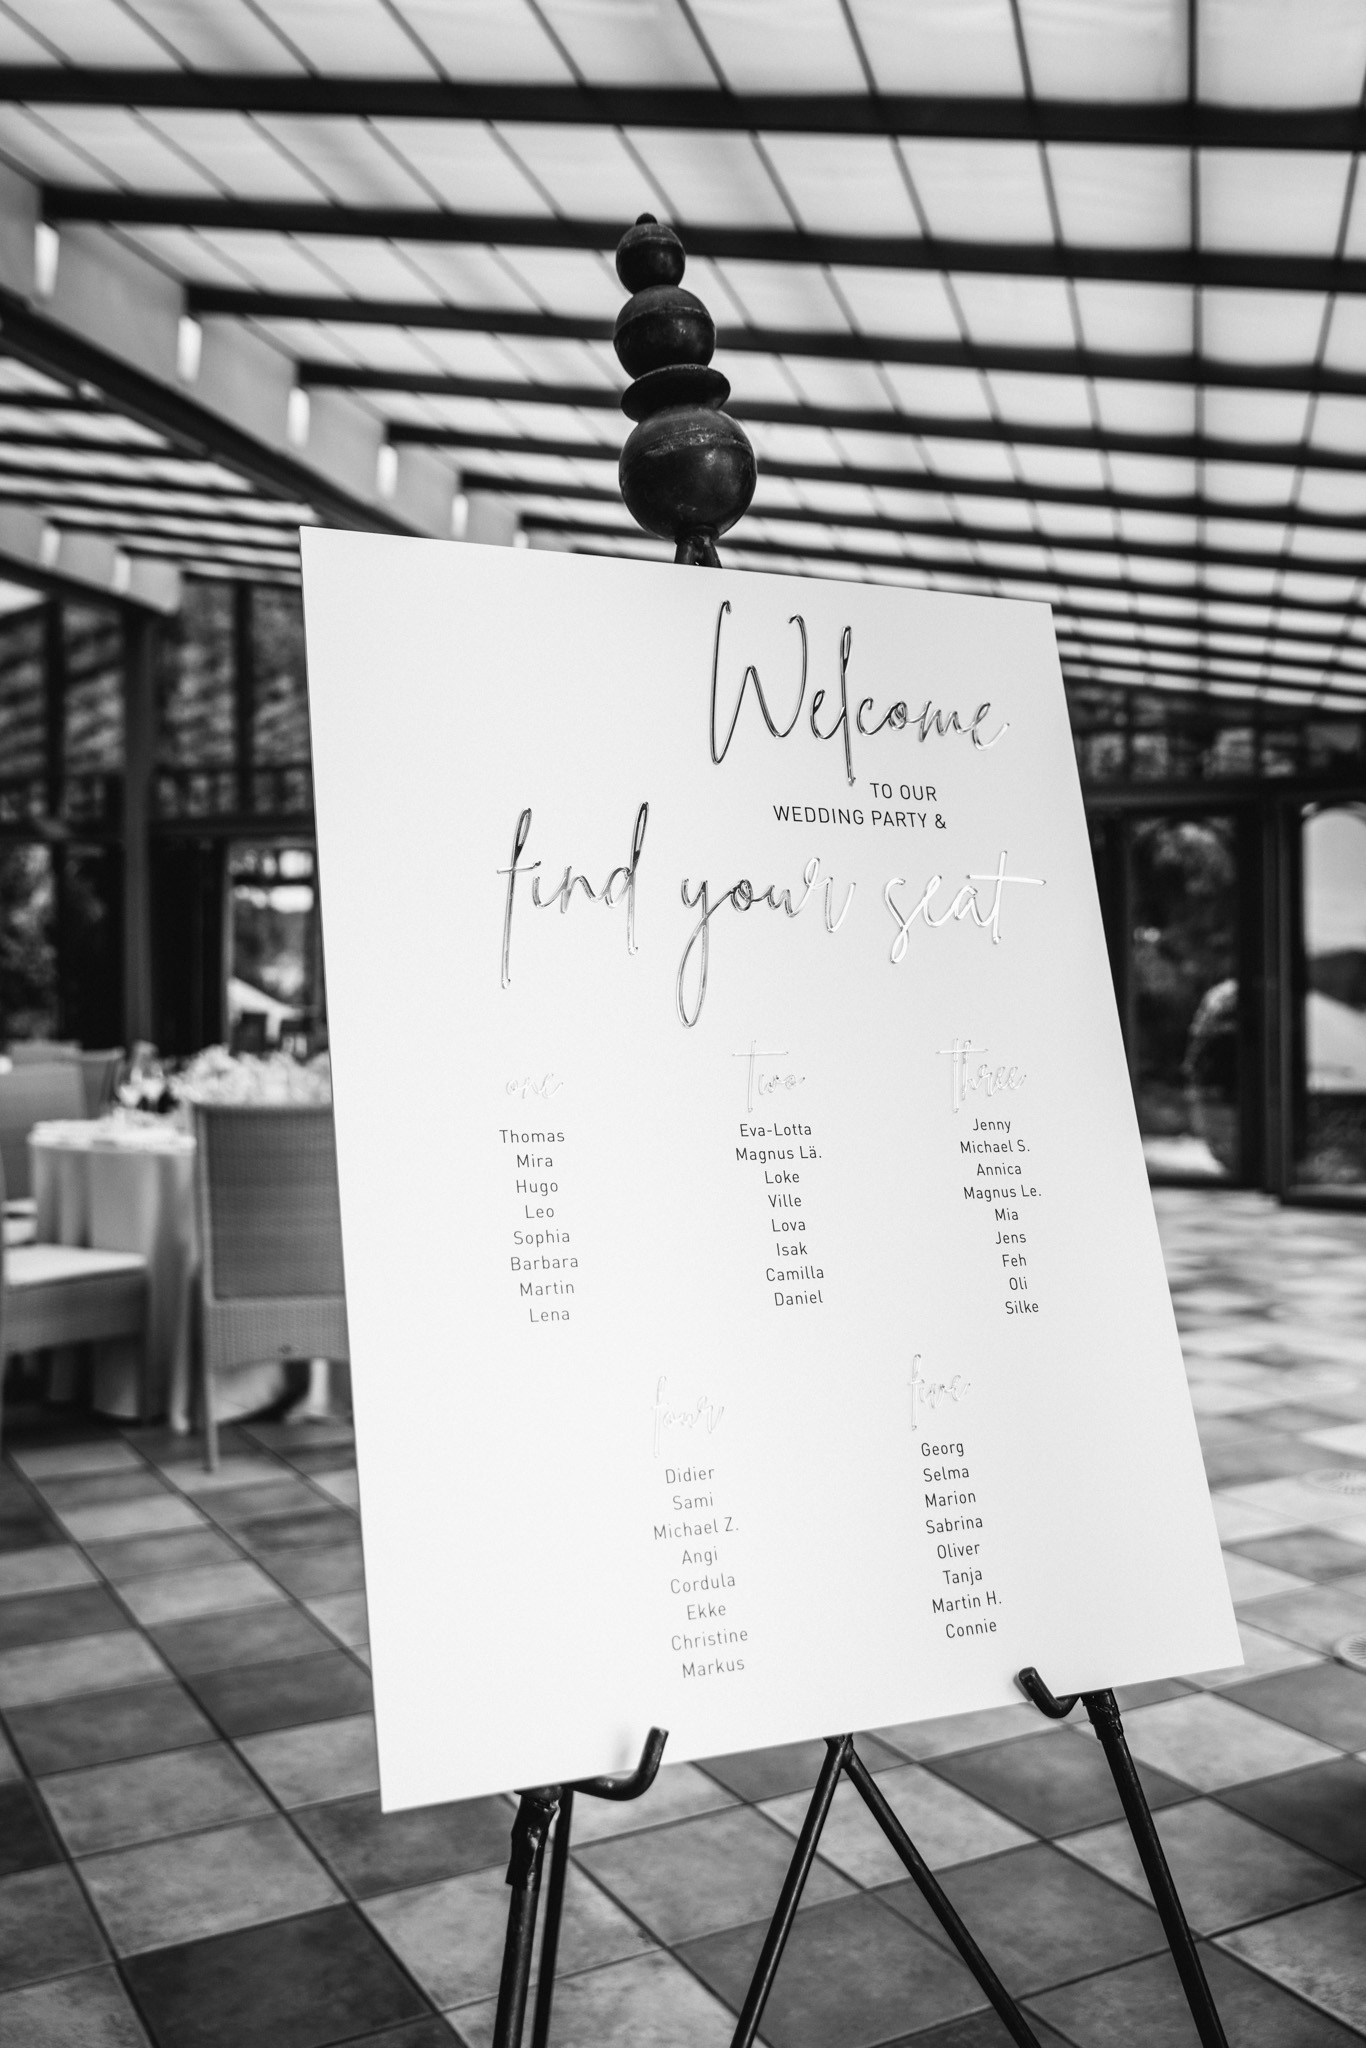 Welcome
TO OUR
WEDDING PARTY &
find your seat
one
Thomas
Mira
Hugo
Leo
Sophia
Barbara
Martin
Lena
Two
Eva-Lotta
Magnus Lä.
Loke
Ville
Lova
Isak
Camilla
Daniel
three
Jenny
Michael S.
Annica
Magnus Le.
Mia
Jens
Feh
Oli
Silke
four
Didier
Sami
Michael Z.
Angi
Cordula
Ekke
Christine
Markus
five
Georg
Selma
Marion
Sabrina
Oliver
Tanja
Martin H.
Connie